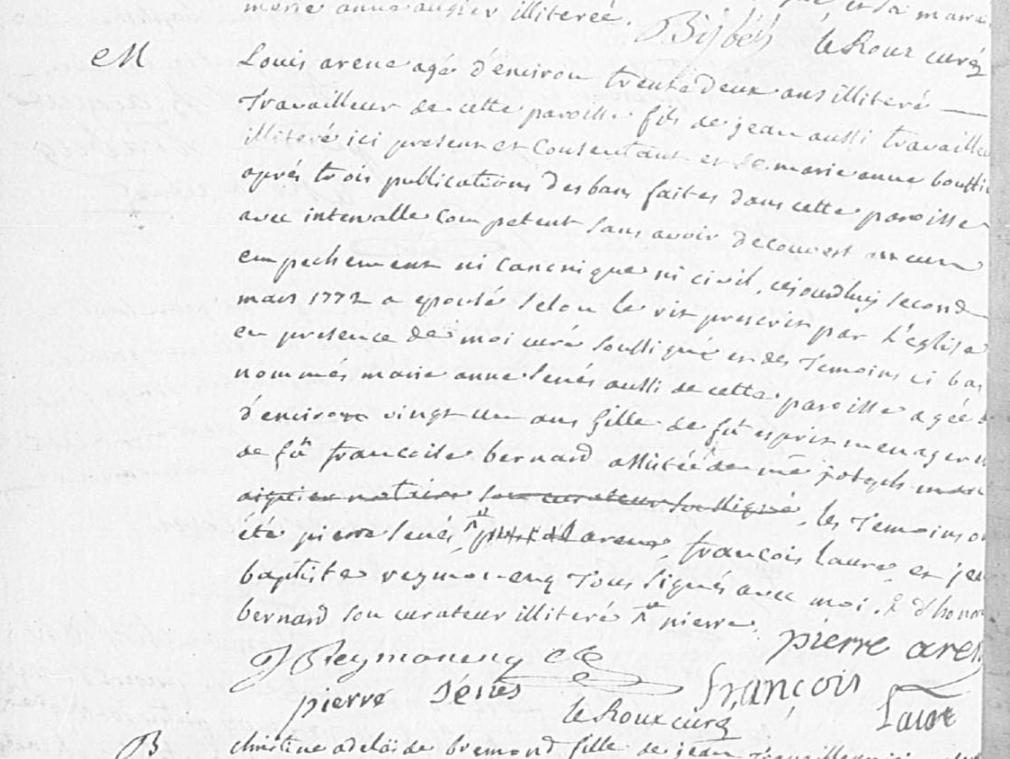 marie anne augier illiterée. et sa marra
le Roux curé
M
Louis arene agé d'environ trente deux ans illiteré
Travailleur de cette paroisse fils de jean aussi travailleu
illiteré ici present et Consentant et de marie anne boutti
aprés trois publications des bans faites dans cette paroisse
avec intervalle Competent sans avoir decouvert aucun
empechement ni Canonique ni civil, cejourdhuy second
mars 1772 a epousé selon le rit prescrit par L'eglise
en presence de moi curé soussigné et des Temoins ci bas
nommés marie anne senés aussi de cette paroisse agée
d'environ vingt un ans fille de fû esprit menager
de fû francoise bernard assistée de me joseph marc
notaire son curateur soussigné, les Temoins o
été pierre senés, arene, francois laure et jea
baptiste reymonenq Tous signés avec moi. & d'honor
bernard son curateur illiteré pierre.
Reymonenq pierre aren
pierre sénés françois
le Roux curé Laure
B christine adelaide bremond fille de jean Travailleur